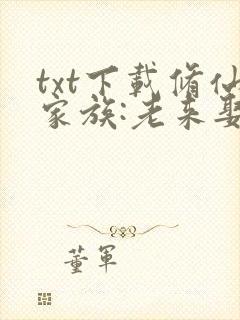 txt下載脩仙
家族:老来娶
董軍